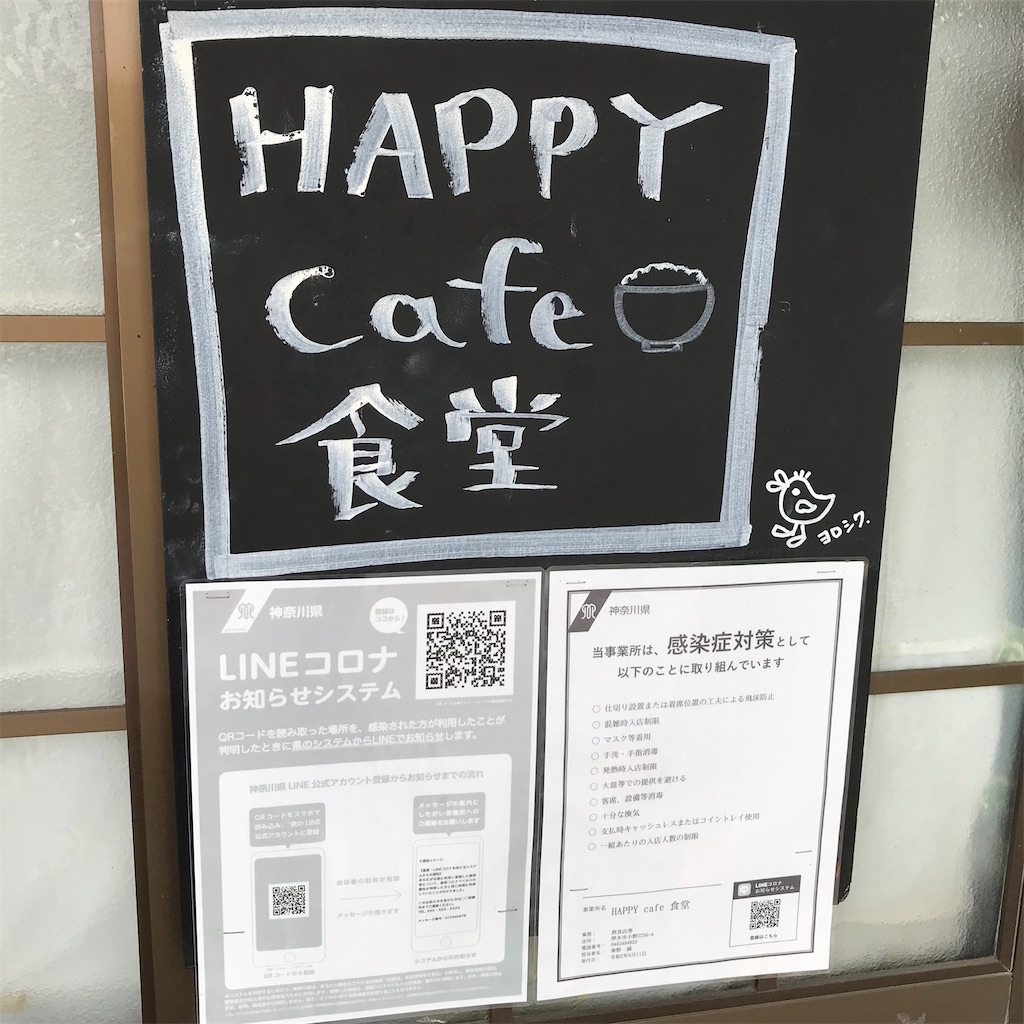 HAPPY
Cafe
食堂
ヨロシク.
神奈川県
登録は
ココから!
LINEコロナ
お知らせシステム
QRコードを読み取った場所を、感染された方が利用したことが
判明したときに県のシステムからLINEでお知らせします。
神奈川県 LINE 公式アカウント登録からお知らせまでの流れ
QRコードをスマホで
読み込み、県のLINE
公式アカウントに登録
メッセージの案内に
したがい各機関への
ご連絡をお願いします
感染者の利用が判明
メッセージが届きます
QRコードから登録
システムからはお知らせ
神奈川県
当事業所は、感染症対策として
以下のことに取り組んでいます
○ 仕切り設置または着席位置の工夫による飛沫防止
○ 混雑時入店制限
○ マスク等着用
○ 手洗・手指消毒
○ 発熱時入店制限
○ 大皿等での提供を避ける
○ 客席、設備等消毒
○ 十分な換気
○ 支払時キャッシュレスまたはコイントレイ使用
○ 一組あたりの入店人数の制限
事業所名 HAPPY cafe 食堂
業態: 飲食店等
住所:
電話番号:
担当者名:
発行日: 令和2年6月11日
LINEコロナ
お知らせシステム
登録はこちら